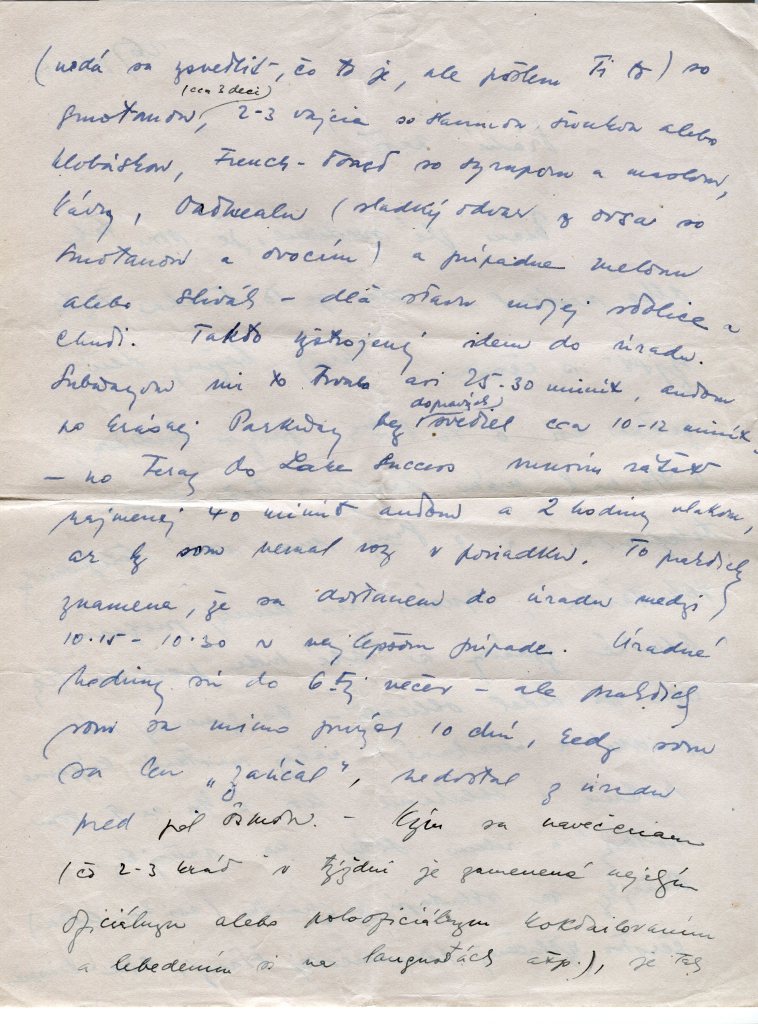 (nedá sa zavedliť, čo to je, ale pošlem Ti to) so
smotanou, (cca 3 deci) 2-3 vajcia so slaninou šunkou alebo
klobáskou, French-Toast so syrupom a maslom,
kávy, Oatmealu (sladký odvar z ovsa so
smotanou a ovocím) a prípadne melonu
alebo sliviek - dľa stavu mojej stolice a
chuti. Takto vystrojený idem do úradu.
Subwayom mi to trvalo asi 25-30 minút, autom
po krásnej Parkway bez dopravných svetiel cca 10-12 minút
- no teraz do Lake Success musím rátať
najmenej 40 minút autom a 2 hodiny vlakom,
ak by som nemal voz v poriadku. To prakticky
znamená, že sa dostanem do úradu medzi
10.15 - 10.30 v najlepšom prípade. Úradné
hodiny sú do 6tej večer - ale prakticky
som sa mimo prvých 10 dní, kedy som
sa len „zaúčal", nedostal z úradu
pred pól ôsmou. - Kým sa navečeriam
(čo 2-3 krát v týždni je zamenené nejakým
oficiálnym alebo polooficiálnym kokteilovaním
a lebedením si na langustách atp.), je tak